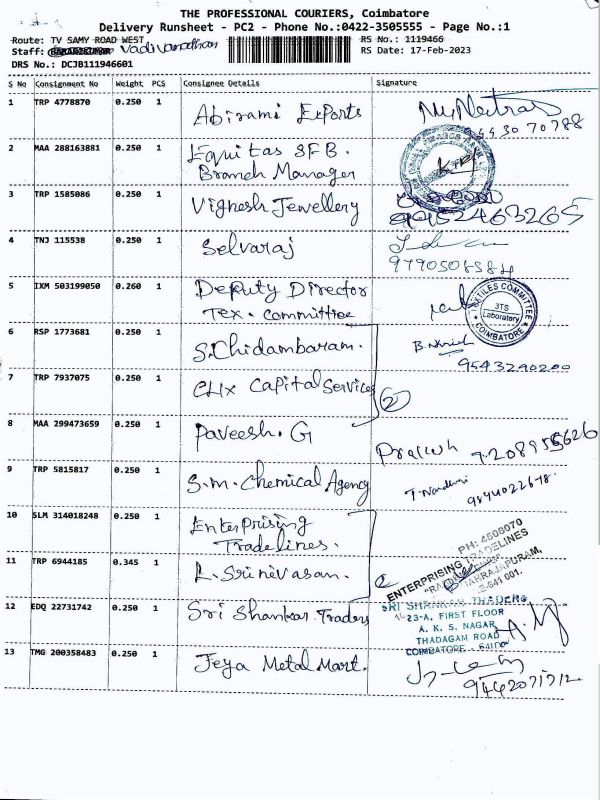 THE PROFESSIONAL COURIERS, Coimbatore
Delivery Runsheet - PC2 - Phone No.:0422-3505555 - Page No.:1
Route: TV SAMY ROAD WEST
RS No.: 1119466
Staff: Vadivanadhan
RS Date: 17-Feb-2023
DRS No.: DCJB111946601
S No Consignment No Weight PCS Consignee Details Signature
1 TRP 4778870 0.250 1 Abirami Exports
2 MAA 288163881 0.250 1 Equitas SFB.
Branch Manager
3 TRP 1585086 0.250 1 Vignesh Jewellery 9952463265
4 TNJ 115538 0.250 1 Selvaraj
9790506584
5 IXM 503199050 0.260 1 Deputy Director
Tex. Committee
TEXTILES COMMITTEE
3TS
Laboratory
COIMBATORE
6 RSP 1773681 0.250 1 S.Chidambaram.
9543290200
7 TRP 7937075 0.250 1 Clix Capital Services
2
8 MAA 299473659 0.250 1 Paveesh. G
9 TRP 5815817 0.250 1 S.M. Chemical Agency
10 SLM 314018248 0.250 1 Enterprising
Tradelines.
PH: 4508070
ENTERPRISING TRADELINES
11 TRP 6944185 0.345 1 L. Srinivasan. 2
12 EDQ 22731742 0.250 1 Sri Shankar Traders
SRI SHANKAR TRADERS
23-A, FIRST FLOOR
A. K. S. NAGAR
THADAGAM ROAD
COIMBATORE
13 TMG 200358483 0.250 1 Jeya Metal Mart.